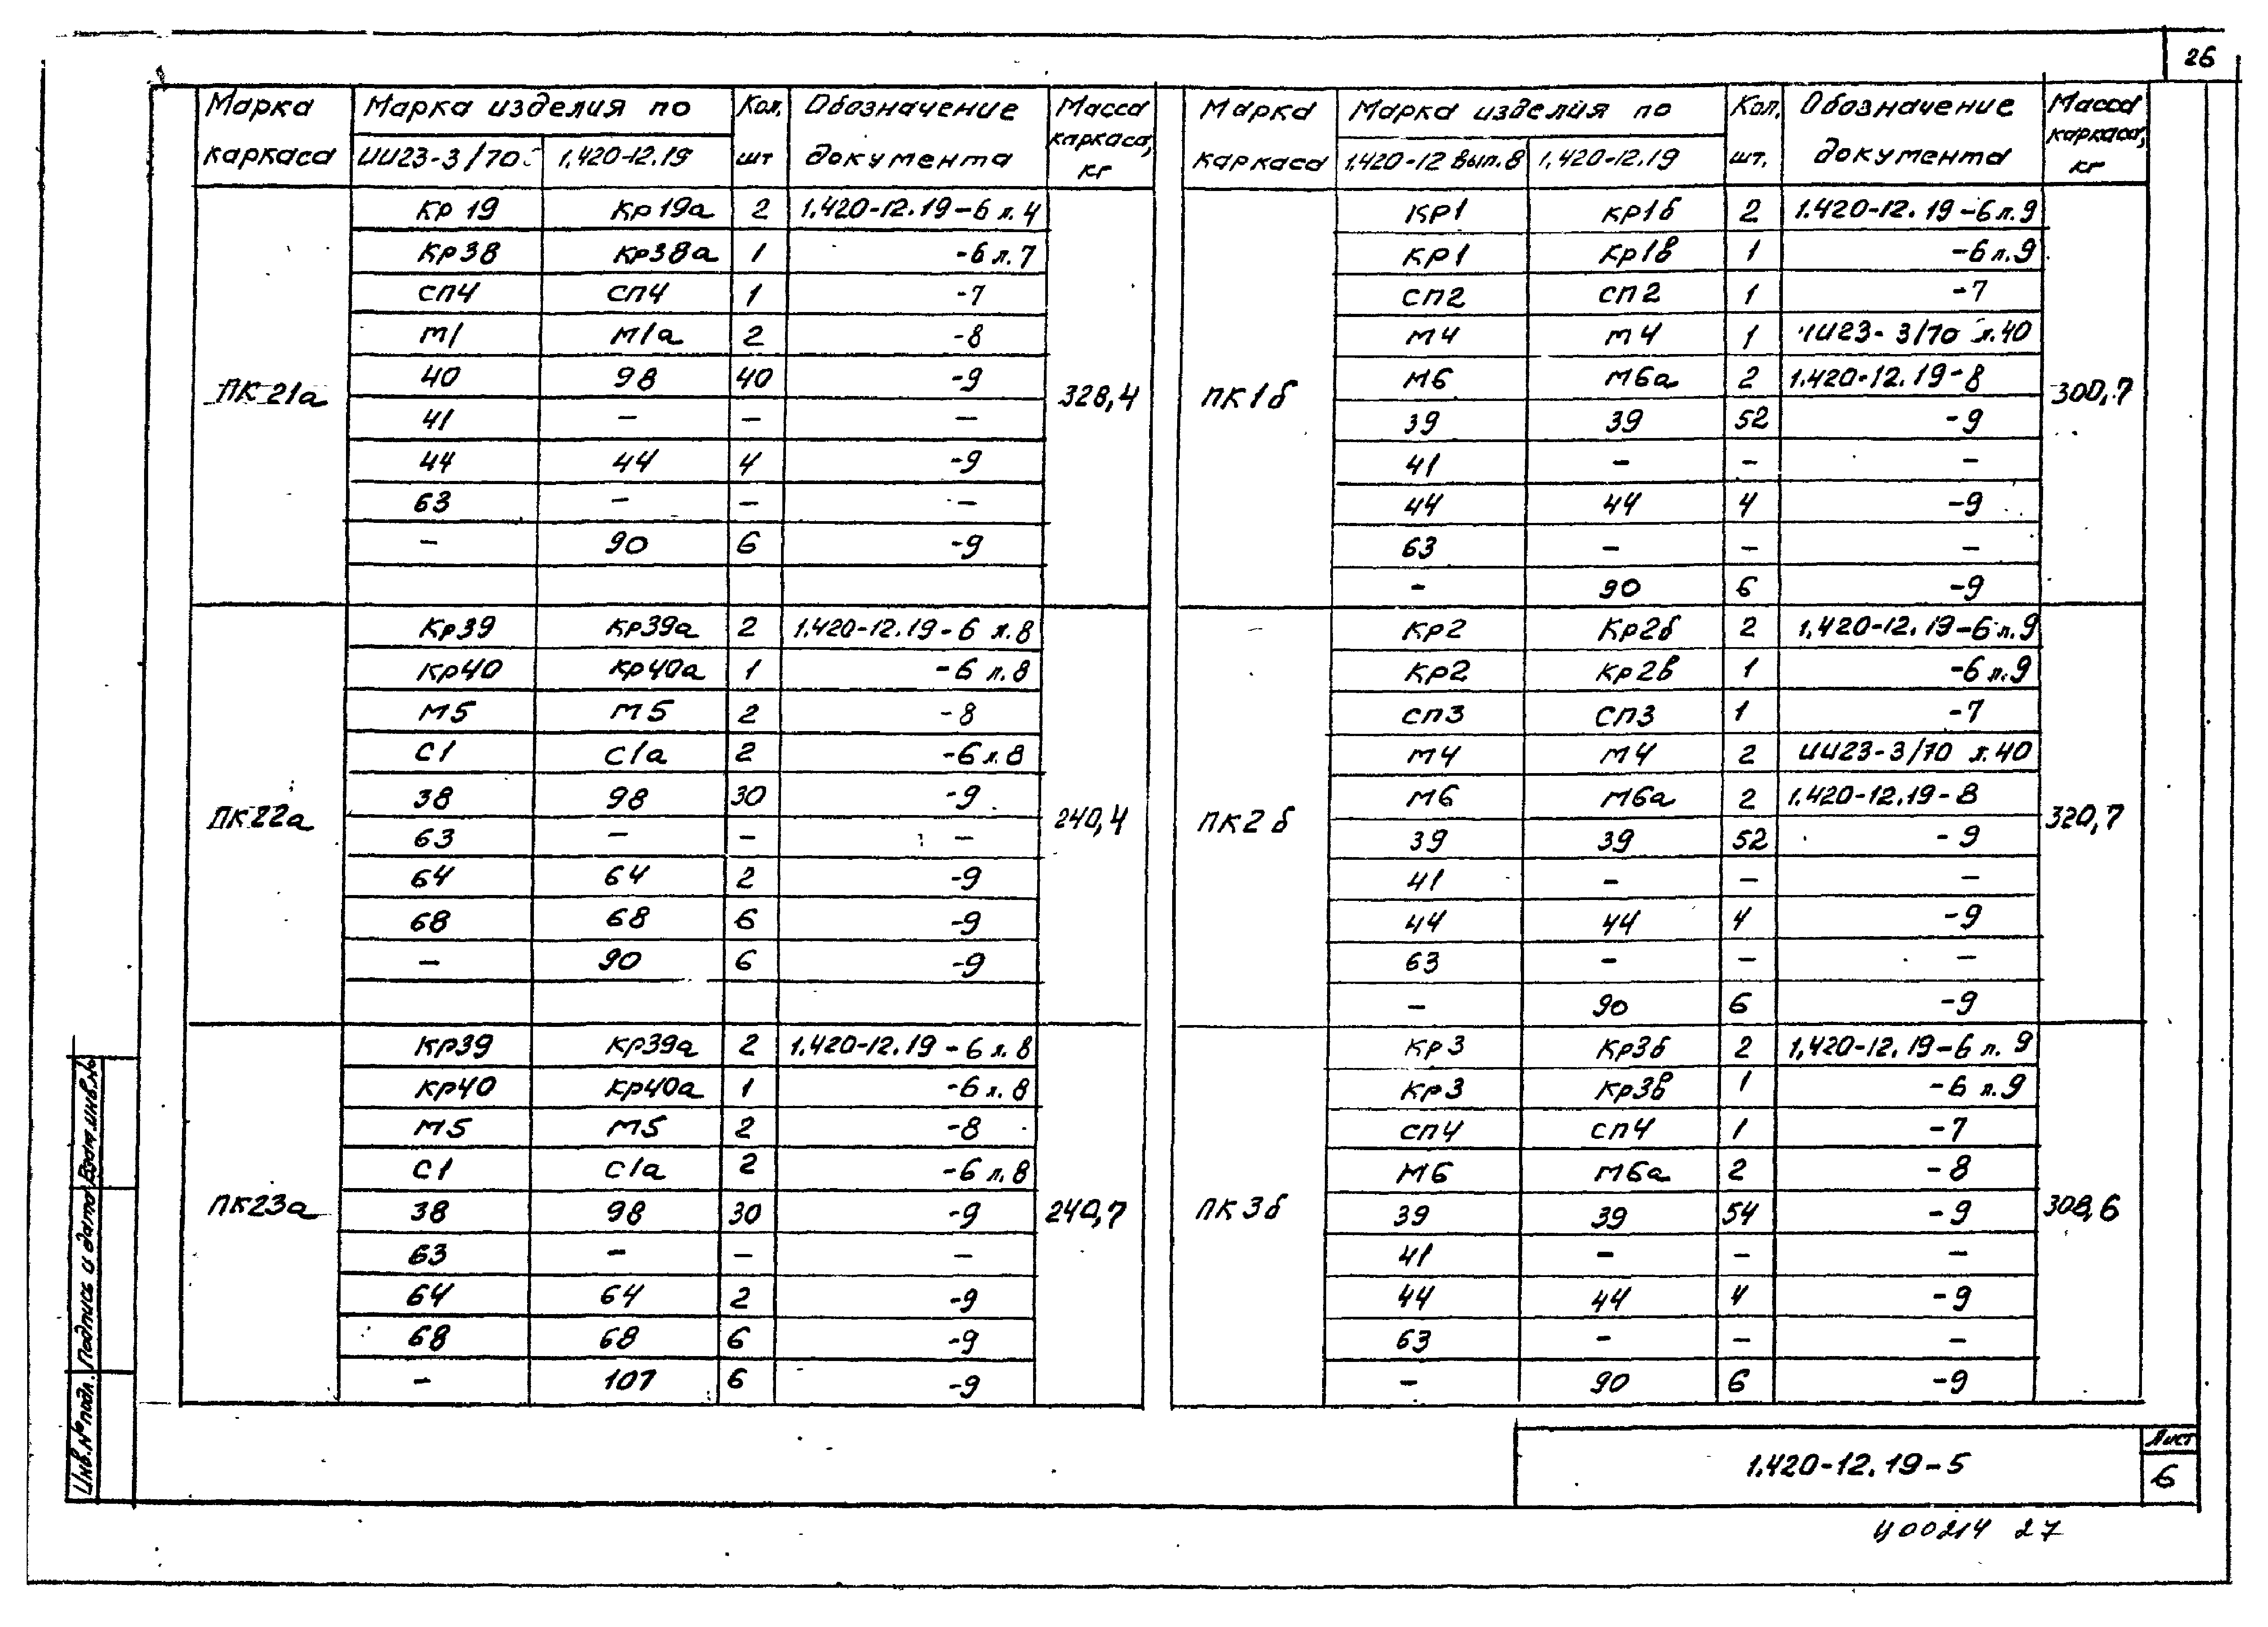 26
Марка каркаса | Марка изделия по | Кол. шт | Обозначение документа | Масса каркаса, кг
ИИ23-3/70 | 1.420-12.19
ПК21а | 328,4
Кр19 | Кр19а | 2 | 1.420-12.19-6 л.4
Кр38 | Кр38а | 1 | -6 л.7
СП4 | СП4 | 1 | -7
М1 | М1а | 2 | -8
40 | 98 | 40 | -9
41 | – | – | –
44 | 44 | 4 | -9
63 | – | – | –
– | 90 | 6 | -9
ПК22а | 240,4
Кр39 | Кр39а | 2 | 1.420-12.19-6 л.8
Кр40 | Кр40а | 1 | -6 л.8
М5 | М5 | 2 | -8
С1 | С1а | 2 | -6 л.8
38 | 98 | 30 | -9
63 | – | – | –
64 | 64 | 2 | -9
68 | 68 | 6 | -9
– | 90 | 6 | -9
ПК23а | 240,7
Кр39 | Кр39а | 2 | 1.420-12.19-6 л.8
Кр40 | Кр40а | 1 | -6 л.8
М5 | М5 | 2 | -8
С1 | С1а | 2 | -6 л.8
38 | 98 | 30 | -9
63 | – | – | –
64 | 64 | 2 | -9
68 | 68 | 6 | -9
– | 107 | 6 | -9
Марка каркаса | Марка изделия по | Кол. шт. | Обозначение документа | Масса каркаса, кг
1.420-12 вып.8 | 1.420-12.19
ПК1б | 300,7
Кр1 | Кр1б | 2 | 1.420-12.19-6 л.9
Кр1 | Кр1в | 1 | -6 л.9
СП2 | СП2 | 1 | -7
М4 | М4 | 1 | ИИ23-3/70 л.40
М6 | М6а | 2 | 1.420-12.19-8
39 | 39 | 52 | -9
41 | – | – | –
44 | 44 | 4 | -9
63 | – | – | –
– | 90 | 6 | -9
ПК2б | 320,7
Кр2 | Кр2б | 2 | 1.420-12.19-6 л.9
Кр2 | Кр2в | 1 | -6 л.9
СП3 | СП3 | 1 | -7
М4 | М4 | 2 | ИИ23-3/70 л.40
М6 | М6а | 2 | 1.420-12.19-8
39 | 39 | 52 | -9
41 | – | – | –
44 | 44 | 4 | -9
63 | – | – | –
– | 90 | 6 | -9
ПК3б | 308,6
Кр3 | Кр3б | 2 | 1.420-12.19-6 л.9
Кр3 | Кр3в | 1 | -6 л.9
СП4 | СП4 | 1 | -7
М6 | М6а | 2 | -8
39 | 39 | 54 | -9
41 | – | – | –
44 | 44 | 4 | -9
63 | – | – | –
– | 90 | 6 | -9
Инв.№подл. Подпись и дата Взам.инв.№
1.420-12.19-5
Лист
6
Ц00214 27